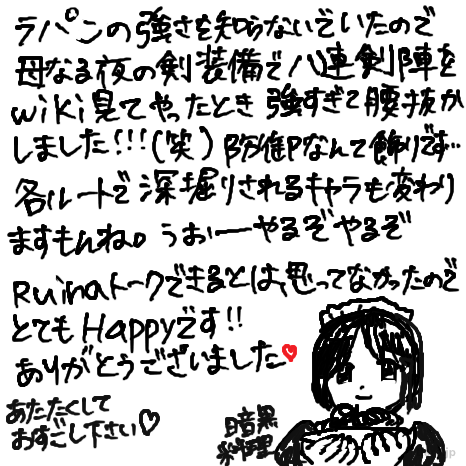 ラパンの強さを知らないでいたので
母なる夜の剣装備で八連剣陣を
wiki見てやったとき強すぎて腰抜か
しました!!!(笑)防御なんて飾りです…
各ルートで深堀りされるキャラも変わり
ますもんね。うぉーーやるぞやるぞ
Ruinaトークできるとは思ってなかったので
とてもHappyです!!
ありがとうございました
あたたくして
おすごし下さい
暗黒
料理